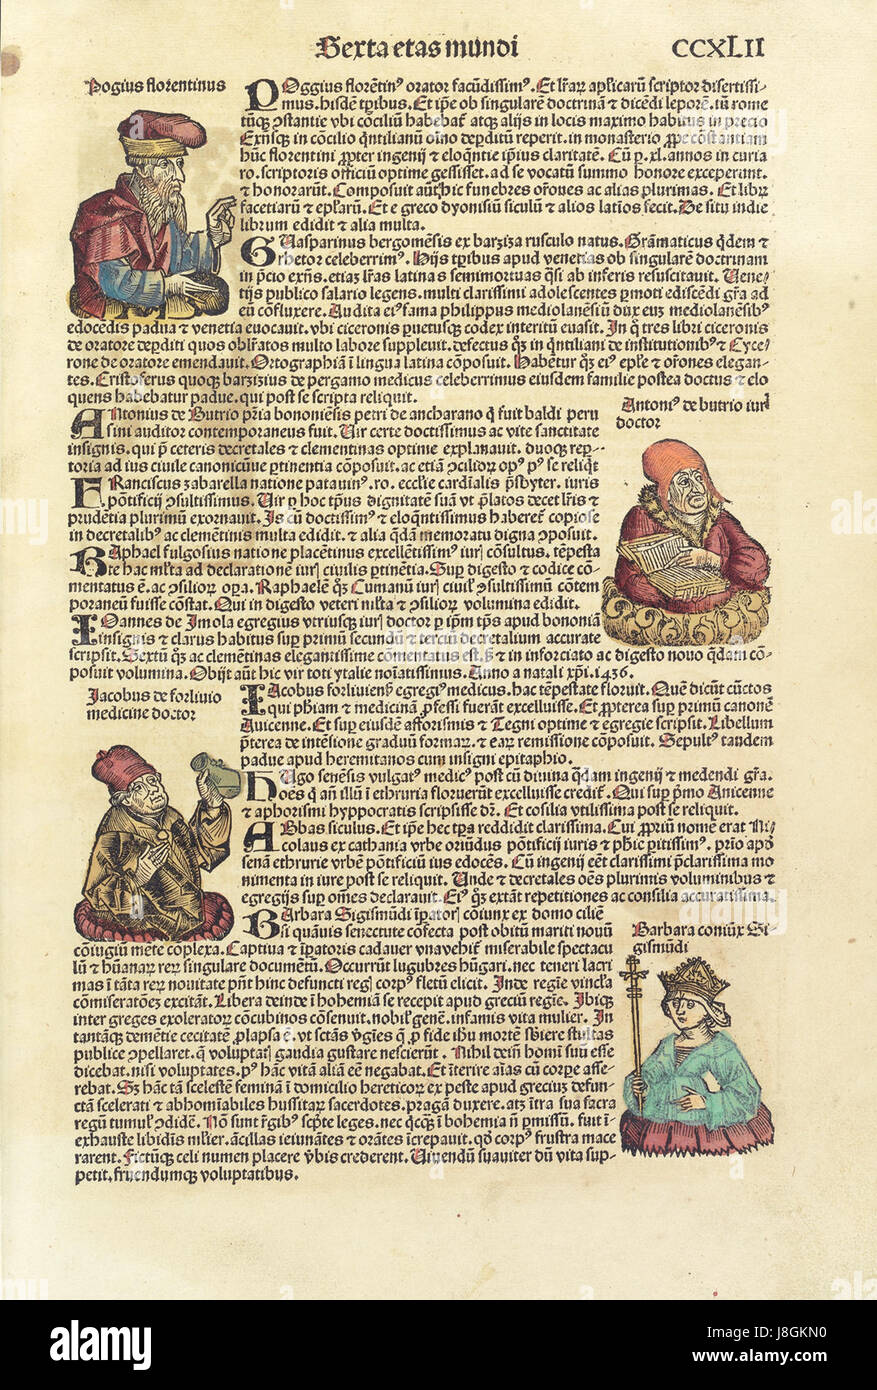 Sexta etas mundi CCXLII
Pogius florentinus
POggius florētin⁹ orator facūdissim⁹. Et lr̄arꝝ apl̄icarū scriptor disertissi-
mus. hisdē tp̄ibus. Et ip̄e ob singularē doctrinā ⁊ dicēdi leporē. in rome
tūcꝫ ꝯstantie vbi cōciliū habebat̄ atqꝫ alijs in locis maximo habitus in precio
Exn̄sqꝫ in cōcilio q̄ntilianū oīno deꝑditū reperit. in monasterio ꝓpe cōstantiam
hūc florentini ꝓpter ingenij ⁊ eloq̄ntie ip̄ius claritatē. Cū ꝑ .xl. annos in curia
ro. scriptoris officiū optime gessisset. ad se vocatū summo honore exceperunt.
⁊ honorarūt. Composuit aūt hic funebres or̄ones ac alias plurimas. Et librū
facetiarū ⁊ ep̄larū. Et e greco dyonisiū siculū ⁊ alios latīos fecit. De situ indie
librum edidit ⁊ alia multa.
GUasparinus bergomēsis ex barziza rusculo natus. Grāmaticus q̄dem ⁊
rhetor celeberrim⁹. Hijs tp̄ribus apud venetias ob singularē doctrinam
in p̄cio exn̄s. etiaꝫ lr̄as latinas semimortuas q̄si ab inferis resuscitauit. Uene-
tijs publico salario legens. multi clarissimi adolescentes ꝑmoti ediscēdi gr̄a ad
eū cōfluxere. Audita ei⁹ fama philippus mediolanēsiū dux euꝫ mediolanēsib⁹
edocēdis padua ⁊ venetia euocauit. vbi ciceronis ꝑuetusqꝫ codex interitū euasit. In q̄ tres libri ciceronis
de oratore deꝑditi quos obl̄ratos multo labore suppleuit. defectus q̄ꝫ in q̄ntiliani de institutionib⁹ ⁊ Cyce-
rone de oratore emendauit. Ortographiā ī lingua latina cōposuit. Habētur q̄ꝫ ei⁹ ep̄le ⁊ or̄ones elegan-
tes. Cristoferus quoqꝫ barzizius de pergamo medicus celeberrimus eiusdem familie postea doctus ⁊ elo
quens habebatur padue. qui post se scripta reliquit.
Antoni⁹ de butrio iur̄
doctor
ANtonius de Butrio pr̄ia bononiēsis petri de ancharano q̄ fuit baldi peru
sini auditor contemporaneus fuit. Uir certe doctissimus ac vite sanctitate
insignis. qui p̄ ceteris decretales ⁊ clementinas optime explanauit. duoqꝫ reper-
toria ad ius ciuile canonicūue ꝑtinentia cōposuit. ac etiā ꝯsilioꝝ op⁹ p⁹ se reliq̄t
FRanciscus zabarella natione patauin⁹. ro. eccl̄ie cardīalis p̄sbyter. iuris
pōtificij ꝯsultissimus. Uir ꝑ hoc tp̄us dignitatē suā vt p̄latos decet lr̄is ⁊
prudētia plurimū exornauit. Is cū doctissim⁹ ⁊ eloq̄ntissimus haberet̄ copiose
in decretalib⁹ ac clemētinis multa edidit. ⁊ alia q̄dā memoratu digna ꝯposuit.
RAphael fulgosius natione placētinus excellētissim⁹ iurꝭ cōsultus. tēpesta
te hac ml̄ta ad declarationē iurꝭ ciuilis ꝑtinētia. Suꝑ digesto ⁊ codice cō-
mentatus ē. ac ꝯsilioꝝ oꝑa. Raphaelē q̄ꝫ Cumanū iurꝭ ciuil̄ ꝯsultissimū cōtem
poraneū fuisse cōstat. Qui in digesto veteri ml̄ta ⁊ ꝯsilioꝝ volumina edidit.
IOannes de Imola egregius vtriusqꝫ iurꝭ doctor ꝑ ip̄m tp̄s apud bononiā
insignis ⁊ clarus habitus suꝑ primū secundū ⁊ terciū decretalium accurate
scripsit. Sextū q̄ꝫ ac clemētinas elegantissime cōmentatus est. hꝫ ⁊ in inforciato ac digesto nouo q̄dam cō-
posuit volumina. Obijt aūt hic vir toti ytalie noīatissimus. Anno a natali xp̄i .1436.
Jacobus de forliuio
medicine doctor
IAcobus forliuiēn̄ egregi⁹ medicus. hac tēpestate floruit. Quē dicūt cūctos
qui phīam ⁊ medicinā ꝓfessi fuerāt excelluisse. Et ꝓpterea suꝑ primū canonē
Auicenne. Et suꝑ eiusdē afforismis ⁊ Tegni optime ⁊ egregie scripsit. Libellum
p̄terea de intēsione graduū formaꝝ. ⁊ earꝝ remissione cōposuit. Sepult⁹ tandem
padue apud heremitanos cum insigni epitaphio.
HUgo senēsis vulgat⁹ medic⁹ post cū diuina q̄dam ingenij ⁊ medendi gr̄a.
hoēs q̄ añ illū ī ethruria floruerūt excelluisse credit̄. Qui suꝑ p̄mo Auicenne
⁊ aphorismi hyppocratis scripsisse dr̄. Et cōsilia vtilissima post se reliquit.
ABbas siculus. Et ip̄e hec tp̄a reddidit clarissima. Cui ꝓpriū nomē erat Ni
colaus ex cathania vrbe oriūdus pōtificij iuris ⁊ phīc ꝑitissim⁹. prīo apd̄
senā ethrurie vrbē pōtificiū ius edocēs. Cū ingenij eēt clarissimi p̄clarissima mo
nimenta in iure post se reliquit. Unde ⁊ decretales oēs plurimis voluminibus ⁊
egregijs suꝑ om̄es declarauit. Ei⁹ q̄ꝫ extāt repetitiones ac consilia accuratissima.
Barbara coniux Si
gismūdi
BArbara Sigismūdi īperatorꝭ cōiunx ex domo ciliēn̄
si quāuis senectute cōfecta post obitū mariti nouū
cōiugiū mēte cōplexa. Captiua ⁊ īꝑatoris cadauer vnaveh̄t miserabile spectacu
lū ⁊ hūanaꝝ rerꝝ singulare documētū. Occurrūt lugubres hūgari. nec teneri lacri
mas ī tāta rerꝝ nouitate pn̄t hinc defuncti regꝭ corp⁹ fletū elicit. Inde regīe vincl̄a
cōmiseratōeꝫ excitāt. Libera deinde ī bohemiā se recepit apud greciū regīe. Ibiqꝫ
inter greges exoletorꝝ cōcubinos cōsenuit. nobil̄ genē. infamis vita mulier. In
tantāqꝫ demētie cecitatē ꝓlapsa ē. vt sctās v̄gīes q̄ ꝑ fide ih̄u mortē sbīere stultas
publice ꝯpellaret. q̄ voluptatꝭ gaudia gustare nescierūt. Nihil deīn̄ homī suū esse
dicebat. nisi voluptates. p⁹ hāc vitā aliā eē negabat. Et īterire aīas cū corꝑe asse-
rebat. Sꝫ hāc tā scelestē feminā ī domicilio hereticoꝝ ex peste apud greciuꝫ defun-
ctā scelerati ⁊ abhomīabiles hussitaꝝ sacerdotes. pragā duxere. atqꝫ ītra sua sacra
regū tumul̄ ꝯdidēt. Nō sunt r̄gib⁹ scp̄te leges. nec q̄cq̄ꝫ ī bohemia n̄ ꝑmissū. fuit ī-
exhauste libidīs ml̄ier. ācillas ieiunātes ⁊ orātes īcrepauit. qd̄ corp⁹ frustra mace
rarent. Fictūqꝫ celi numen placere v̄bis crederent. Uiuendū suauiter dū vita sup-
petit. fruendumqꝫ voluptatibus.
alamy
Image ID: J8GKN0
www.alamy.com